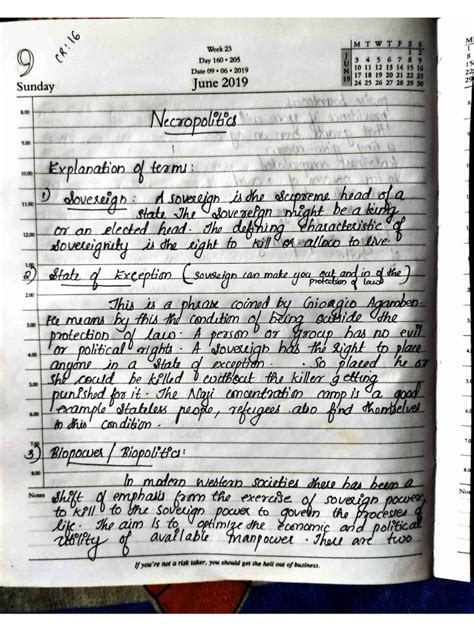 9
CR:16
Week 23
Day 160 • 205
Date 09 • 06 • 2019
Sunday
June 2019
M T W T F S S
1 2
3 4 5 6 7 8 9
10 11 12 13 14 15 16
17 18 19 20 21 22 23
24 25 26 27 28 29 30
JUN 19
Necropolitics
Explanation of terms:
1) Sovereign: A sovereign is the supreme head of a
state. The sovereign might be a king
or an elected head. The defining characteristic of
sovereignity is the right to kill or allow to live.
2) State of Exception (sovereign can make you out and in of the
protection of law)
This is a phrase coined by Giorgio Agamben.
He means by this the condition of being outside the
protection of law. A person or group has no civil
or political rights. A sovereign has the right to place
anyone in a state of exception. So placed he or
she could be killed without the killer getting
punished for it. The Nazi concentration camp is a good
example. Stateless people, refugees also find themselves
in this condition.
3) Biopower / Biopolitics:
In modern western societies there has been a
shift of emphasis from the exercise of sovereign power
to kill to the sovereign power to govern the processes of
life. The aim is to optimize the economic and political
utility of available manpower. There are two
Notes
If you're not a risk taker, you should get the hell out of business.